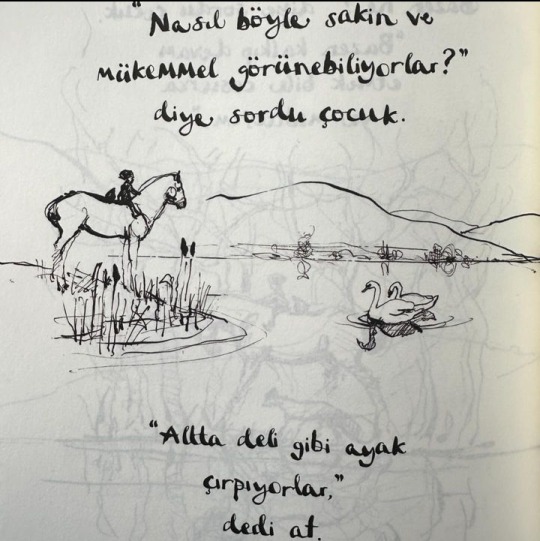 "Nasıl böyle sakin ve
mükemmel görünebiliyorlar?"
diye sordu çocuk.
"Altta deli gibi ayak
çırpıyorlar,"
dedi at.